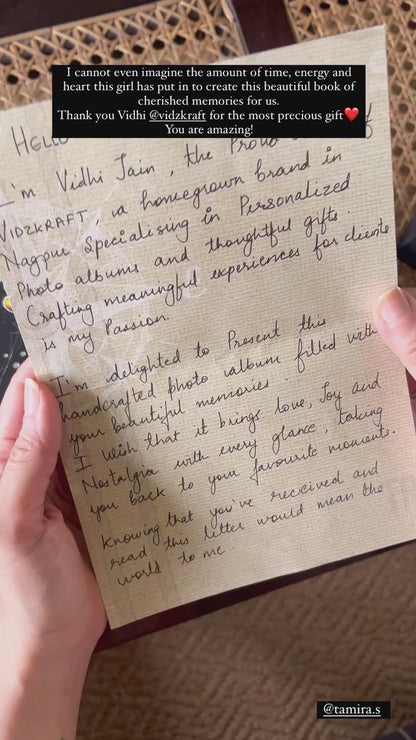 I cannot even imagine the amount of time, energy and
heart this girl has put in to create this beautiful book of
cherished memories for us.
Thank you Vidhi @vidzkraft for the most precious gift❤️
You are amazing!
HELLO
I'm Vidhi Jain, the Proud of
VIDZKRAFT, a homegrown brand in
Nagpur Specialising in Personalized
Photo albums and thoughtful gifts.
Crafting meaningful experiences for clients
is my Passion.
I'm delighted to Present this
handcrafted photo album filled with
your beautiful memories.
I wish that it brings love, Joy and
Nostalgia with every glance, taking
you back to your favourite moments.
Knowing that you've received and
read this letter would mean the
world to me.
@tamira.s